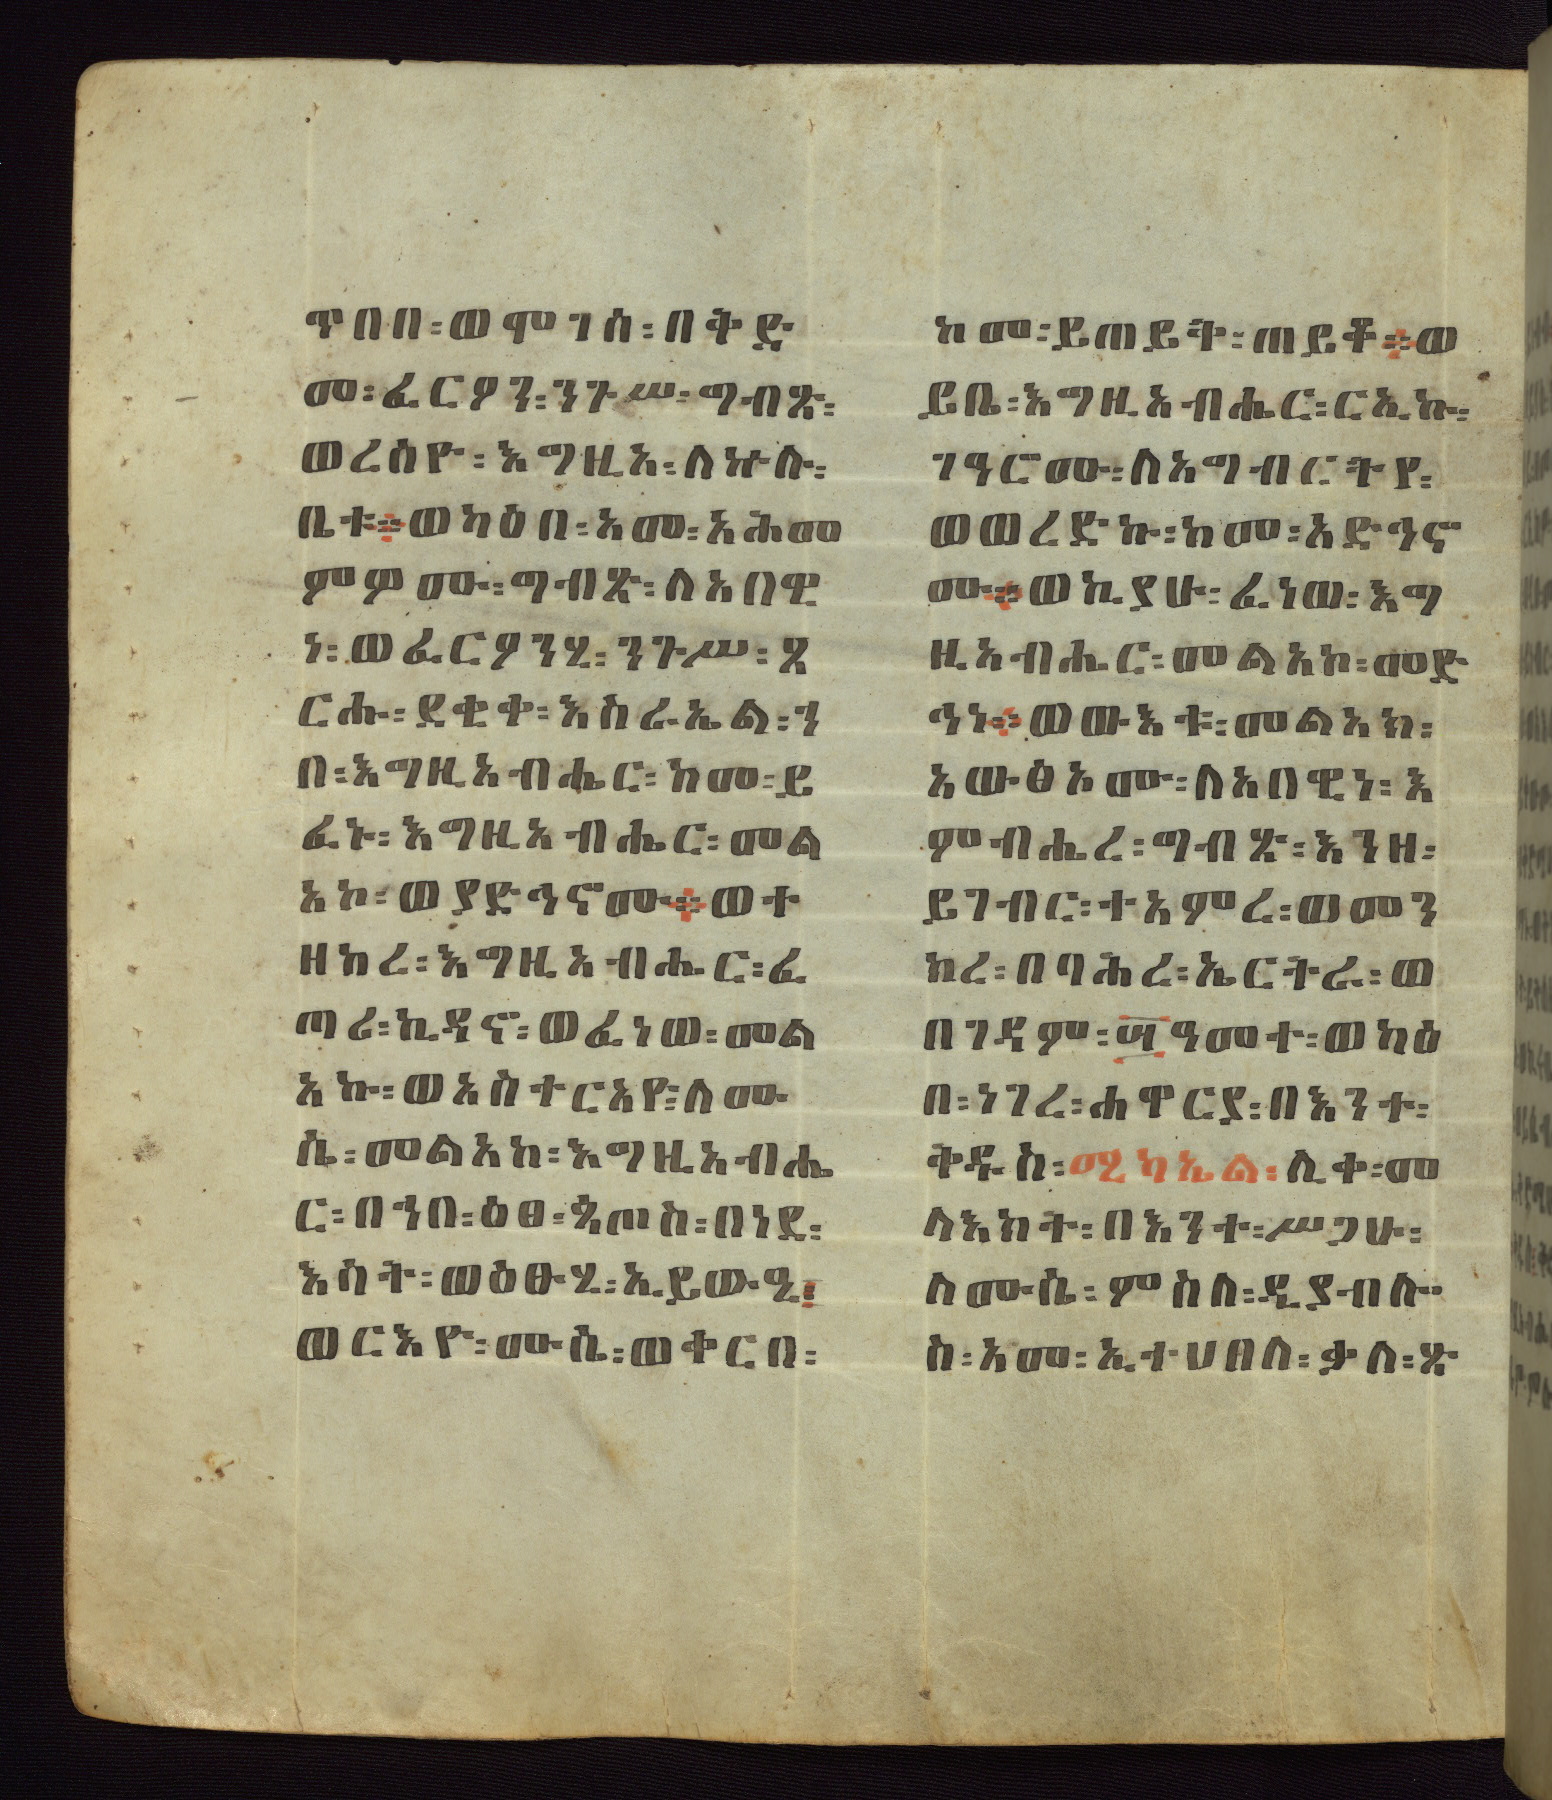 ጥበበ፡ወሞገሰ፡በቅድ
መ፡ፈርዖን፡ንጉሠ፡ግብጽ፡
ወረሰዮ፡እግዚአ፡ለኵሉ፡
ቤቱ።ወካዕበ፡አመ፡አሕመ
ምዎሙ፡ግብጽ፡ለአበዊ
ነ፡ወፈርዖንሂ፡ንጉሠ፡ጸ
ርሑ፡ደቂቀ፡እስራኤል፡ኀ
በ፡እግዚአብሔር፡ከመ፡ይ
ፈኑ፡እግዚአብሔር፡መል
አኮ፡ወያድኅኖሙ።ወተ
ዘከረ፡እግዚአብሔር፡ፈ
ጣሪ፡ኪዳኖ፡ወፈነወ፡መል
አኩ፡ወአስተርአየ፡ለሙ
ሴ፡መልአከ፡እግዚአብሔ
ር፡በኀበ፡ዕፀ፡ጳጦስ፡በነደ፡
እሳት፡ወዕፁሂ፡ኢይውዒ፡
ወርእዮ፡ሙሴ፡ወቀርበ፡
ከመ፡ይጠይቅ፡ጠይቆ።ወ
ይቤ፡እግዚአብሔር፡ርኢኩ፡
ገዓሮሙ፡ለአግብርትየ፡
ወወረድኩ፡ከመ፡አድኅኖ
ሙ።ወኪያሁ፡ፈነወ፡እግ
ዚአብሔር፡መልአከ፡መድ
ኅነ።ወውእቱ፡መልአክ፡
አውፅኦሙ፡ለአበዊነ፡እ
ምብሔረ፡ግብጽ፡እንዘ፡
ይገብር፡ተአምረ፡ወመን
ክረ፡በባሕረ፡ኤርትራ፡ወ
በገዳም፡፵ዓመተ፡ወካዕ
በ፡ነገረ፡ሐዋርያ፡በእንተ፡
ቅዱስ፡ሚካኤል፡ሊቀ፡መ
ላእክት፡በእንተ፡ሥጋሁ፡
ለሙሴ፡ምስለ፡ዲያብሎ
ስ፡አመ፡ኢተሀበለ፡ቃለ፡ጽ